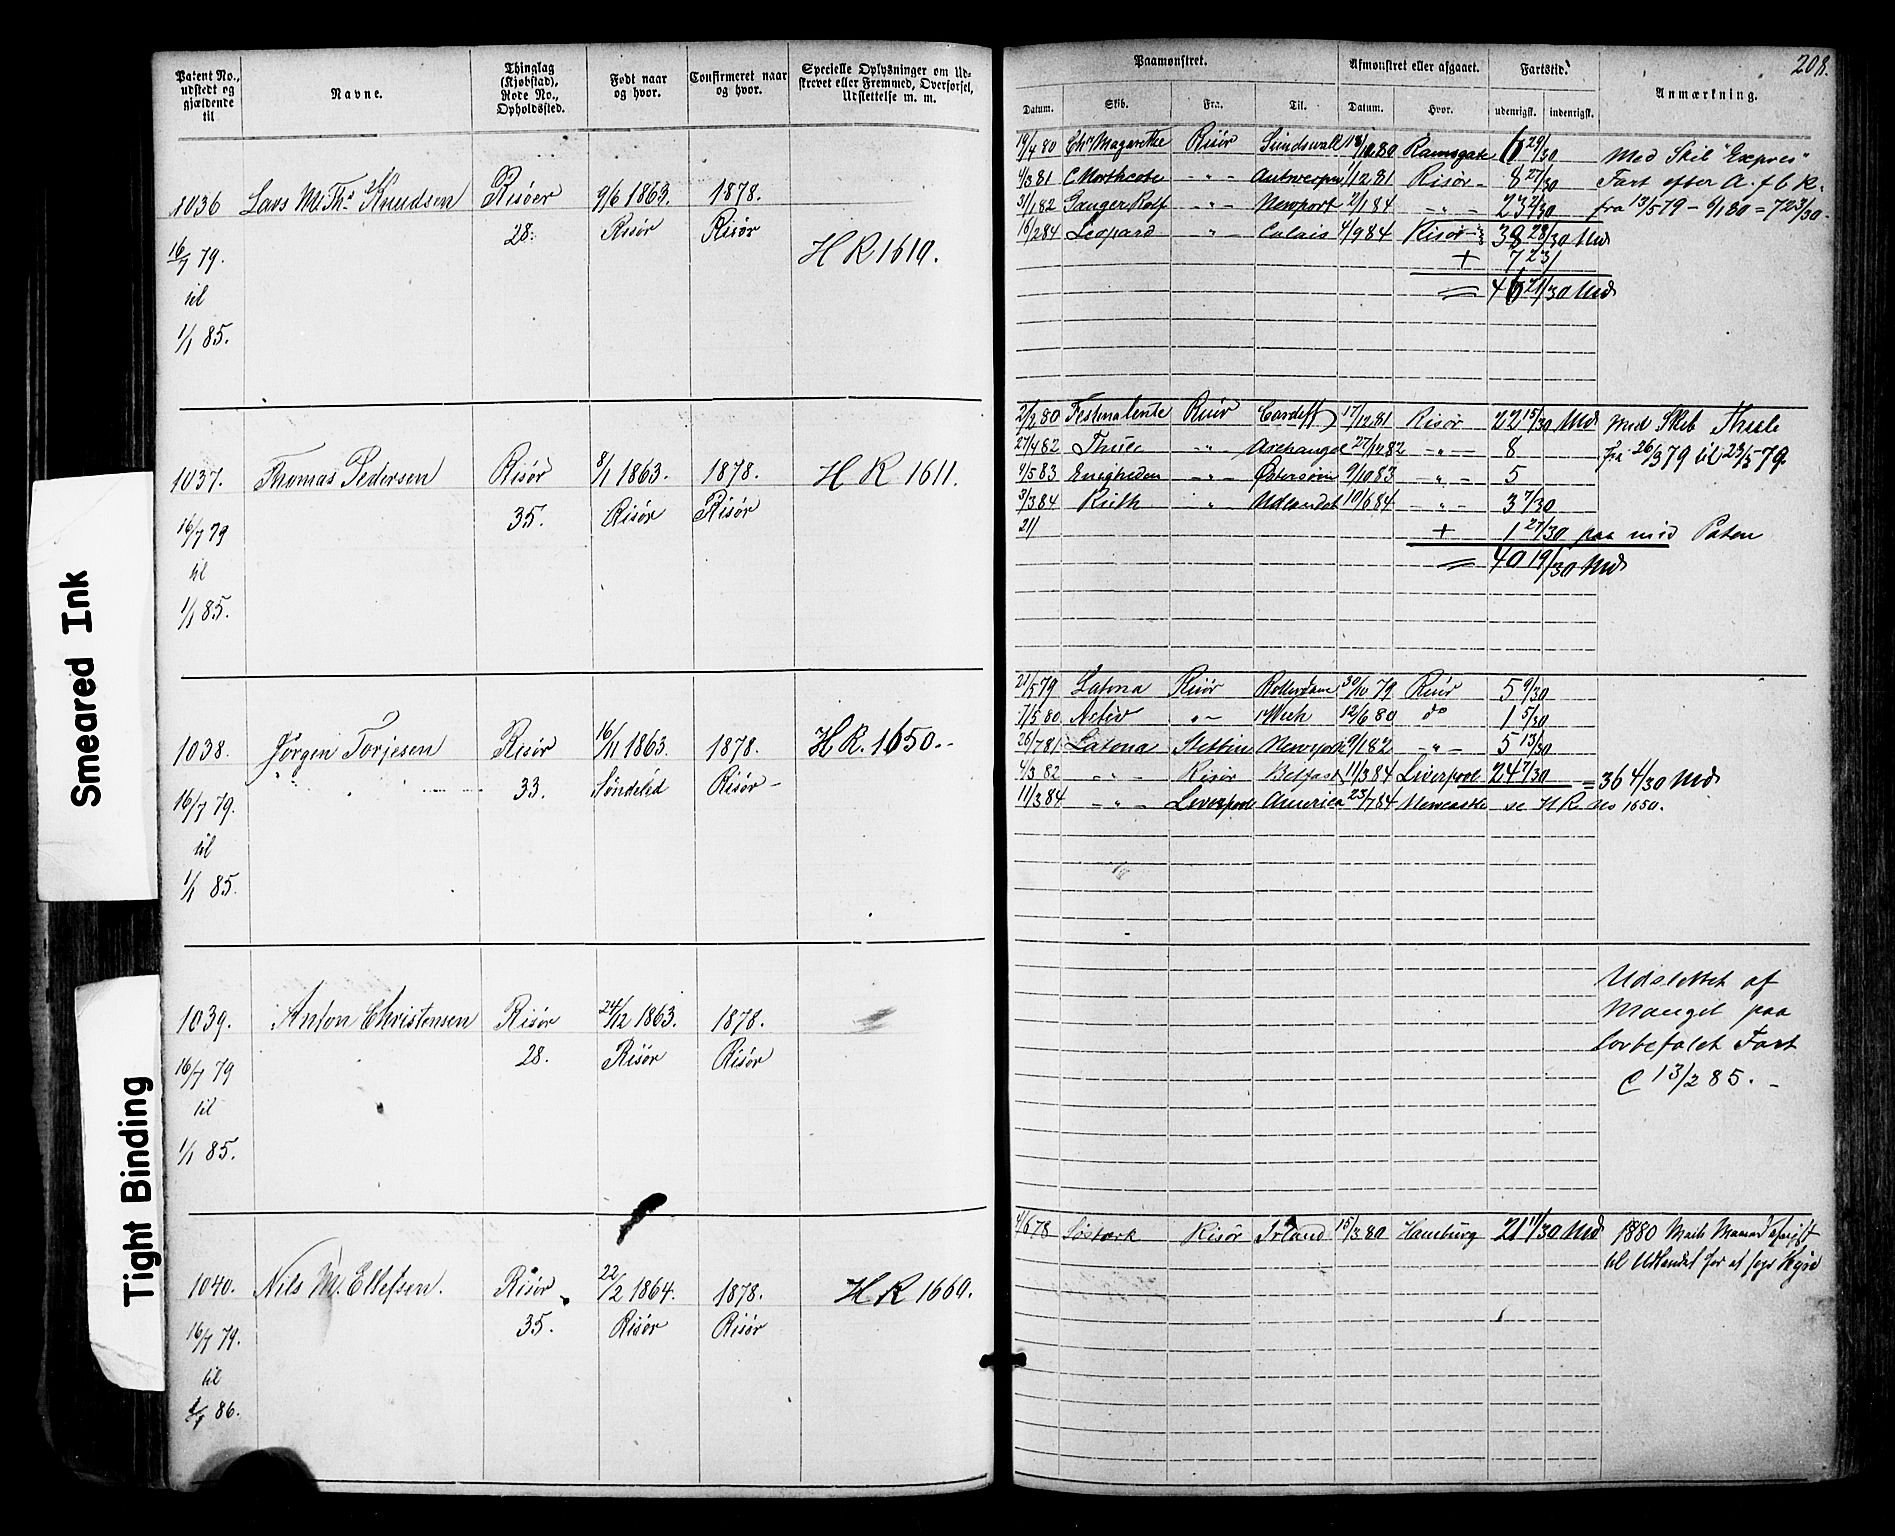 Patent No., udstedt og gjældende til
Navne.
Thinglag (Kjøbstad), Rode No., Opholdssted.
Født naar og hvor.
Confirmeret naar og hvor.
Specielle Oplysninger om Udskrevet eller Fremmed, Overførsel, Udslettelse m. m.
1036 Lars M. Ths. Knudsen Risøer 9/6 1863. 1878.
28. Risør Risør
16/7 79. H R 1610.
til
1/1 85.
1037. Thomas Pedersen Risør 8/1 1863. 1878. H R 1611.
16/7 79 35. Risør Risør
til
1/1 85.
1038. Jørgen Torjesen Risør 16/11 1863. 1878. H R. 1650.-
16/7 79. 33. Søndeled Risør-
til
1/1 85.
1039. Anton Christensen Risør 24/12 1863. 1878.
16/7 79 28. Risør Risør
til
1/1 85.
1040. Nils M. Ellefsen. Risør 22/2 1864. 1878. H R 1660.
16/7 79. 35. Risør Risør
til
1/1 86.
Smeared Ink
Tight Binding
208.
Paamønstret. Afmønstret eller afgaaet. Fartstid. Anmærkning.
Datum. Skib. Fra. Til. Datum. Hvor. udenrigsk. indenrigsk.
19/4 80 Chr Magarethe Risør Sundswall 80 Ramsgate 6 29/30 Med Skib "Expres"
4/3 81 C. Northcote -"- Antwerpen /12 81 Risør- 8 27/30 Fart efter A. f b R.
3/1 82 Ganger Rolf -"- Newport 2/1 84 -"- 23 2/30 fra 13/5 79 - 6/1 80 = 7 23/30-
16/2 84 Leopard " Calais 4/9 84 Risør 38 28/30 Md
+ 7 23/
= 46 21/30 Md
2/2 80 Festina lente Risør Cardiff 17/12 81 Risør 22 15/30 Md Med Skib Thule
27/4 82 Thule " Archangel 27/12 82 -"- 8 fra 26/3 79 til 23/5 79.
4/5 83 Enigheden -"- Østersøen 9/10 83 -"- 5
3/3 84 Ruth " Udlandet 10/6 84 -"- 3 7/30
21/ + 1 27/30 paa mid Paten
= 40 19/30 Md
21/5 79 Latona Risør Rotterdam 30/10 79 Risør 5 9/30
7/5 80 Activ "- Wick 12/6 80 do 1 5/30
26/7 81 Latona Stettin Newyork 9/1 82 -"- 5 13/30
4/3 82 -"- Risør Belfast 11/3 84 Liverpool 24 7/30 = 36 4/30 Md
11/3 84 -"- Liverpool America 23/7 84 Newcastle se H R No 1650.
Udslettet af
Mangel paa
lovbefalet Fart
C 13/2 85.-
4/6 78 Søstærk Risør Irland 15/3 80 Hamburg 21 11/30 Md 1880 Marts Maaned afrejst
til Udlandet for at søge Hyre